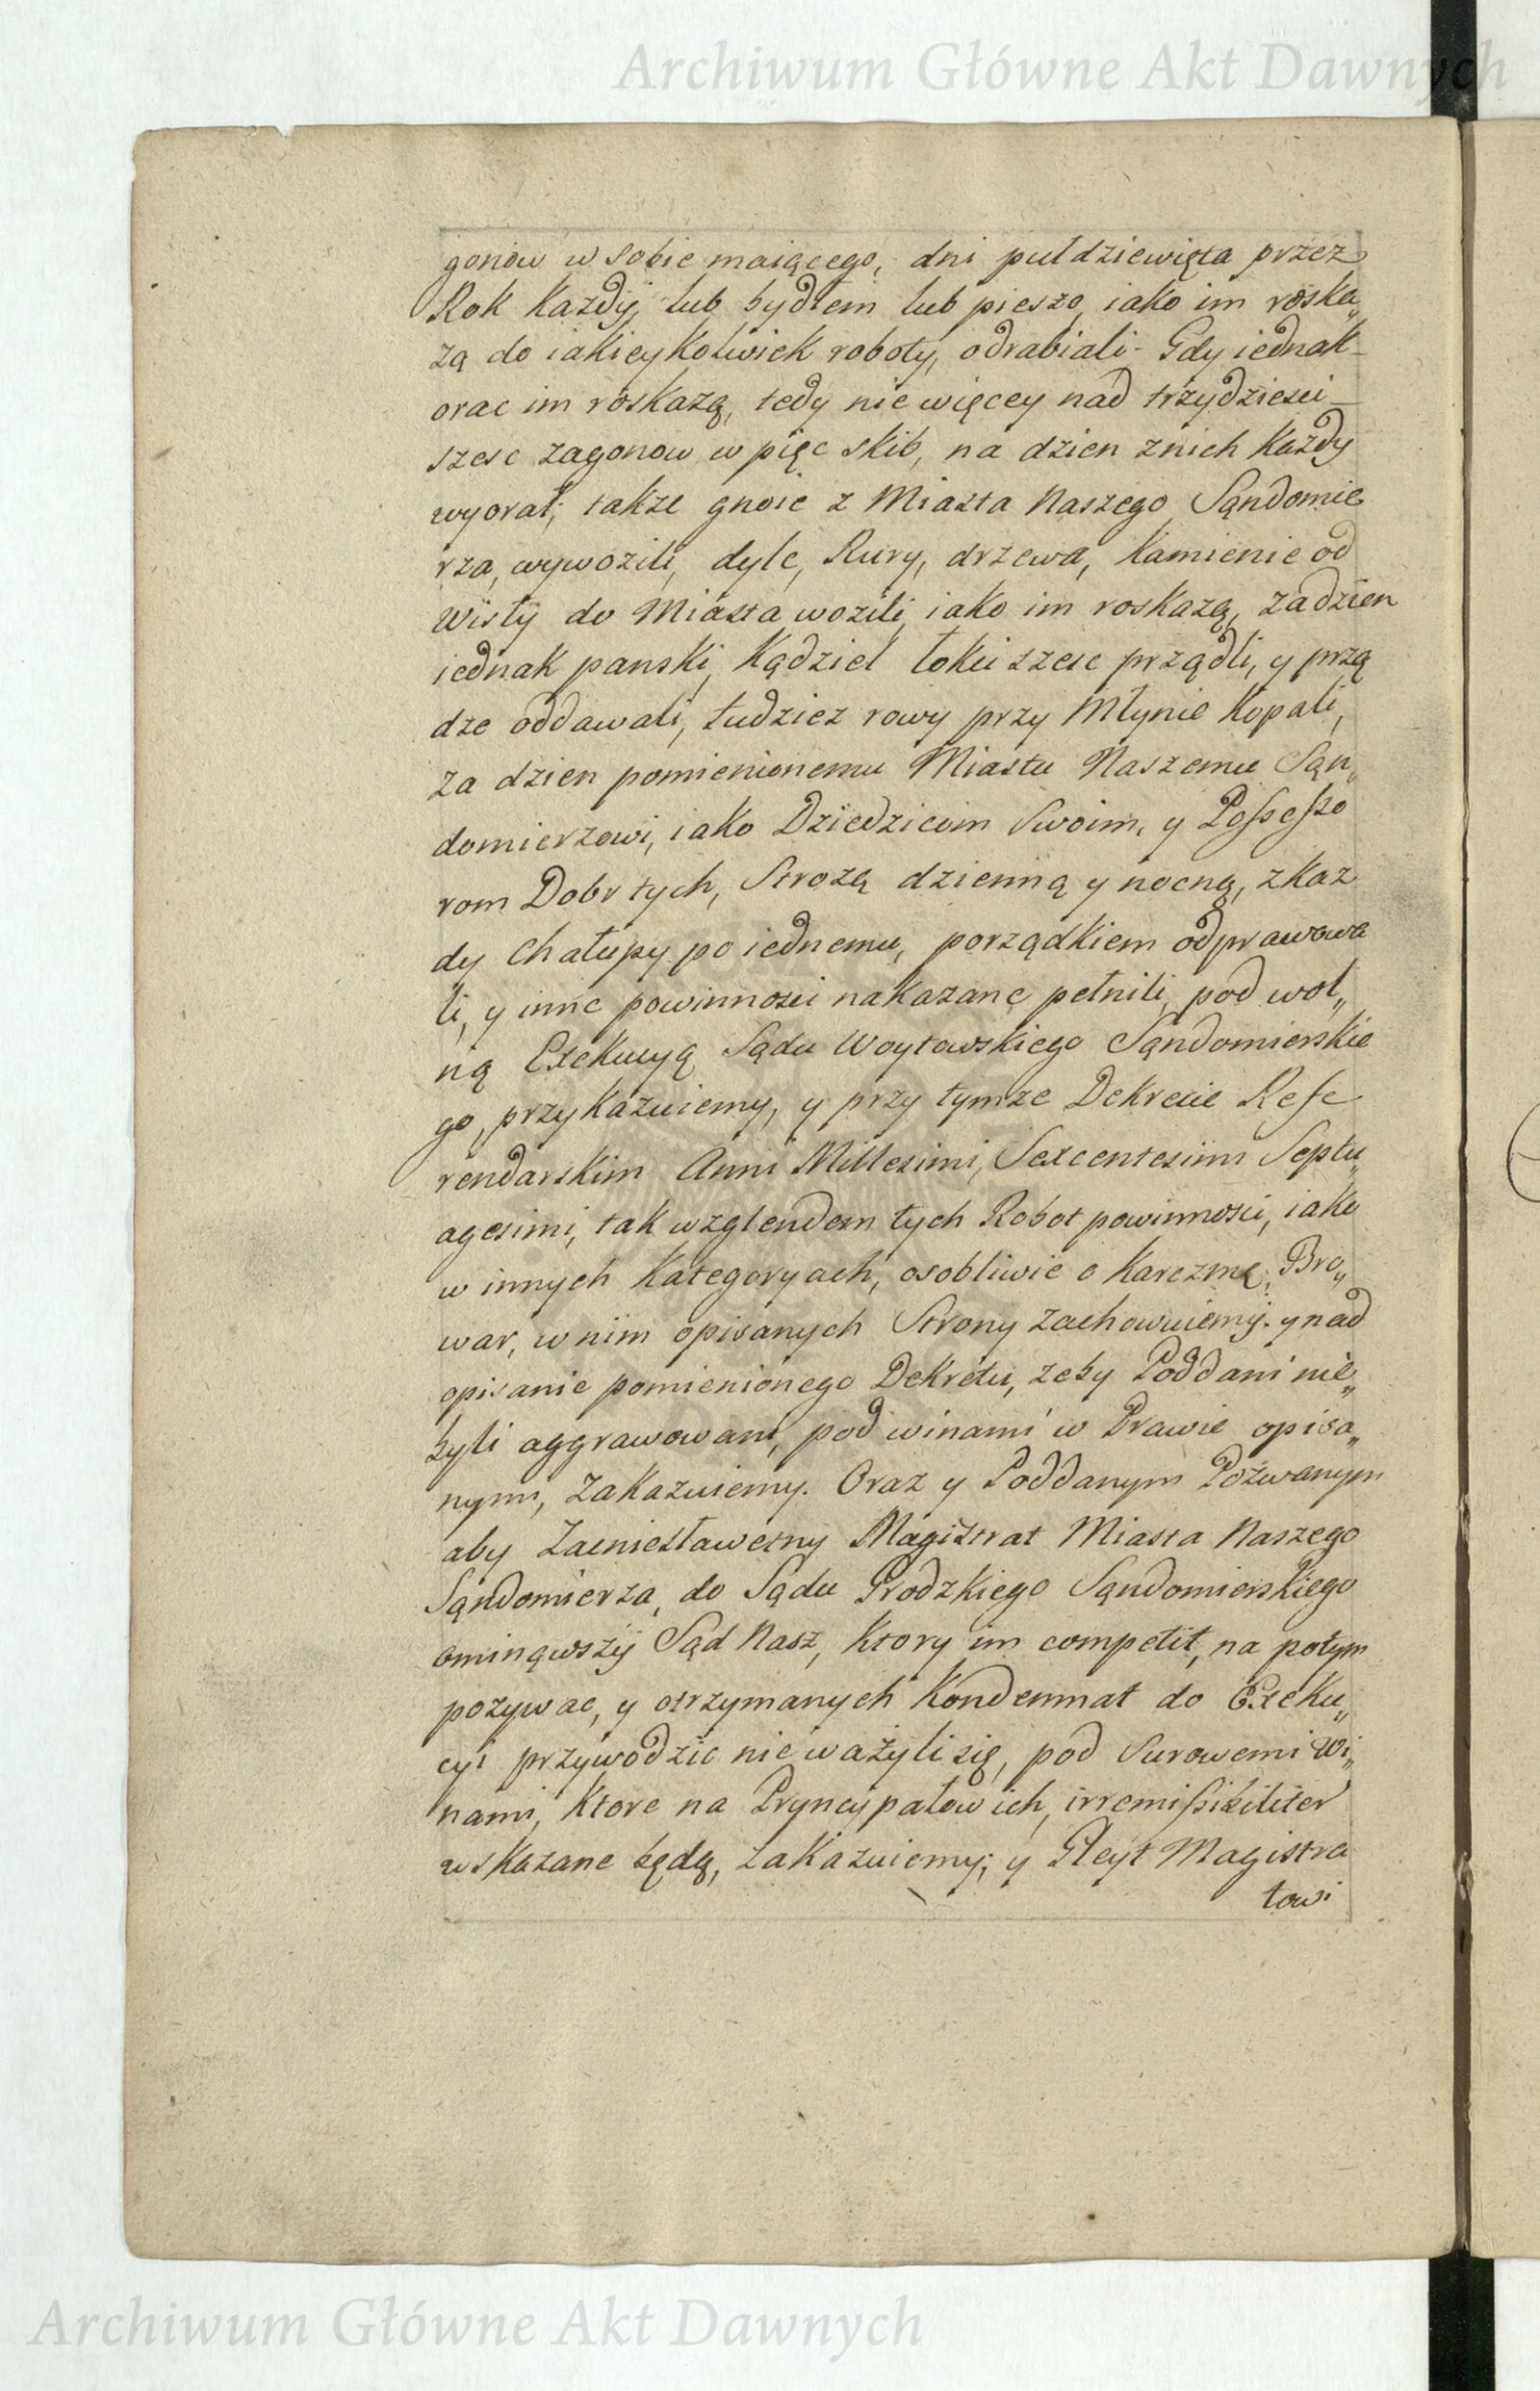 Archiwum Główne Akt Dawnych
gonow w sobie maiącego, dni puł dziewięta przez
Rok Kazdÿ, lub bydłem lub pieszo, iako im roska„
zą do iakieykolwiek roboty, odrabiali. Gdy iednak
orac im roskazą, tedy nie więcey nad trzydziesci
szesc zagonow w pięc skib, na dzien znich Kazdy
wyorał, takze gnoie z Miasta Naszego Sąndomie
rza, wywozili, dyle, Rury, drzewa, Kamienie od
Wisły do Miasta wozili, iako im roskazą, za dzien
iednak panski, Kądziel łokci szesc prządli, y przą
dze oddawali, tudziez rowy przy Młynie Kopali,
za dzien pomienionemu Miastu Naszemu Sąn„
domierzowi, iako Dziedzicom Swoim, y Possesso
rom Dobr tych, Strozą dzienną y nocną, z Kaz
dy Chałupy po iednemu, porządkiem odprawowa
li, y inne powinnosci nakazane pełnili, pod wol„
ną Exekucyą Sądu Woytowskiego Sąndomierskie
go, przykazuiemy, y przy tymze Dekrecie Refe
rendarskim Anni Millesimi, Sexcentesimi Septu„
agesimi, tak wzglendem tych Robot powinnosci, iako
w innych Kategoryach, osobliwie o Karczmę, Bro„
war, w nim opisanych Strony zachowuiemy. y nad
opisanie pomienionego Dekretu, zeby Poddani nie„
byli aggrawowani, pod winami w Prawie opisa„
nymi, zakazuiemy. Oraz y Poddanym Pozwanym
aby Zacniesławetny Magistrat Miasta Naszego
Sąndomierza, do Sądu Grodzkiego Sąndomierskiego
ominąwszÿ Sąd Nasz, Ktory im competit, na potym
pozywac, y otrzymanych Kondemnat do Exeku„
cyi przywodzic nie ważyli się, pod Surowemi Wi„
nami, Ktore na Pryncypałow ich, irremissibiliter
wskazane będą, zakazuiemy; y Gleyt Magistra
towi
Archiwum Główne Akt Dawnych